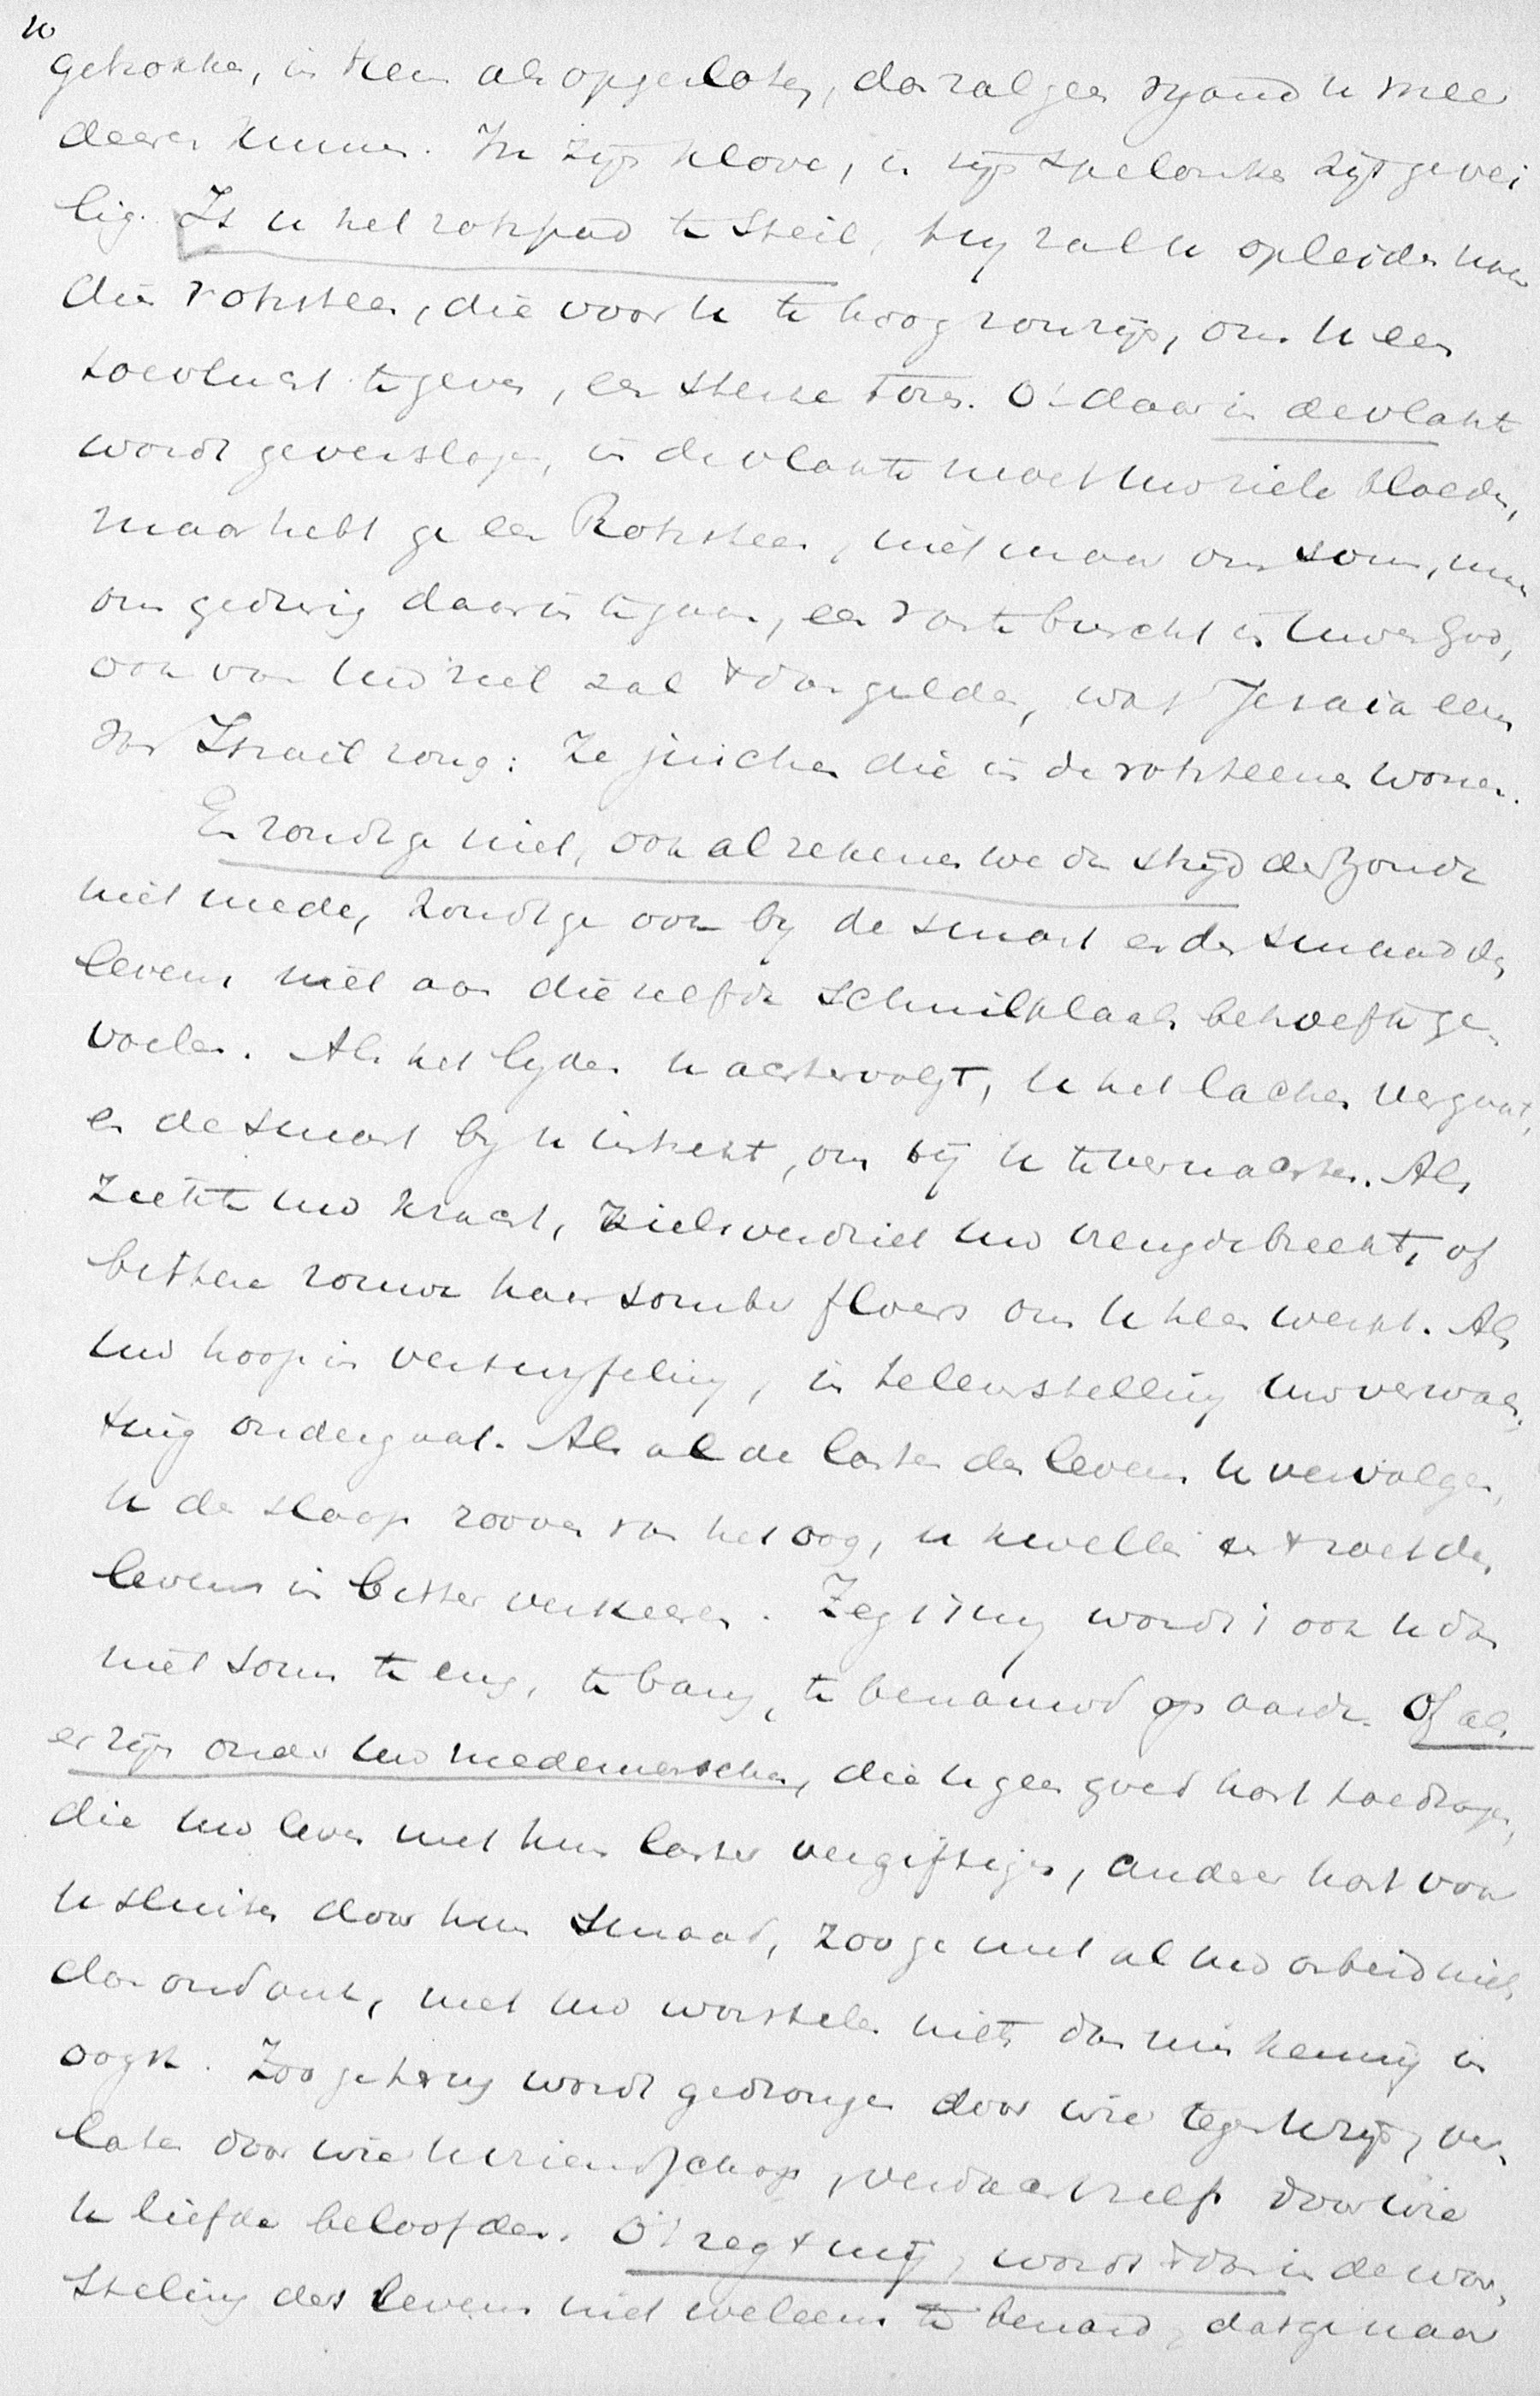 10
getrokken, in Hem als opgesloten, dan zal geen vyand u meer
deeren kunnen. In zijn kloven, in zijn spelonken zijt ge vei
lig. Is u het rotspad te steil, Hy zal u opleiden naar
dien rotssteen, die voor u te hoog zou zijn, om u een
toevlucht te geven, een sterke Toren. O! daar in de vlakte
wordt ge verslagen, in de vlakte moet uw ziele bloeden,
maar hebt ge een Rotssteen, niet maar om soms, maar
om gedurig daarin te gaan, een vaste burcht in Uwen God,
ook van uw ziel zal 't dan gelden, wat Jesaia eens
van Israël zong: Ze juichen die in de rotssteenen wonen.
En zoudt ge niet, ook al rekenen we den strijd der Zonde
niet mede, zoudt ge ook by de smart en den smaad des
levens niet aan die zelfde schuilplaats behoefte ge-
voelen. Als het lyden u achtervolgt, u het lachen vergaat,
en de smart by u intrekt, om bij u te vernachten. Als
ziekte uw kracht, zielsverdriet uw vreugde breekt, of
bittere rouwe haar somber floers om u heen werpt. Als
uw hoop in vertwyfeling, in teleurstelling uw verwach-
ting ondergaat. Als al de lasten des levens u vervolgen,
u de slaap rooven van het oog, u kwellen en 't zoet des
levens in bitter verkeeren. Zeg 't my wordt 't ook u dan
niet soms te eng, te bang, te benauwd op aarde. Of als
er zijn onder uw medemenschen, die u geen goed hart toedragen,
die uw leven met hun laster vergiftigen, ander hart voor
u sluiten door hun smaad, zoo ge met al uw arbeid niets
dan ondank, met uw worstelen niets dan miskenning in
oogst. Zoo ge terug wordt gedrongen door wie tegen u zijn, ver-
laten door wie u vriendschap, verdacht zelfs door wie
u liefde beloofden. O! zeg 't mij, wordt 't dan in de wor-
steling des levens niet weleens te benard, dat ge naar